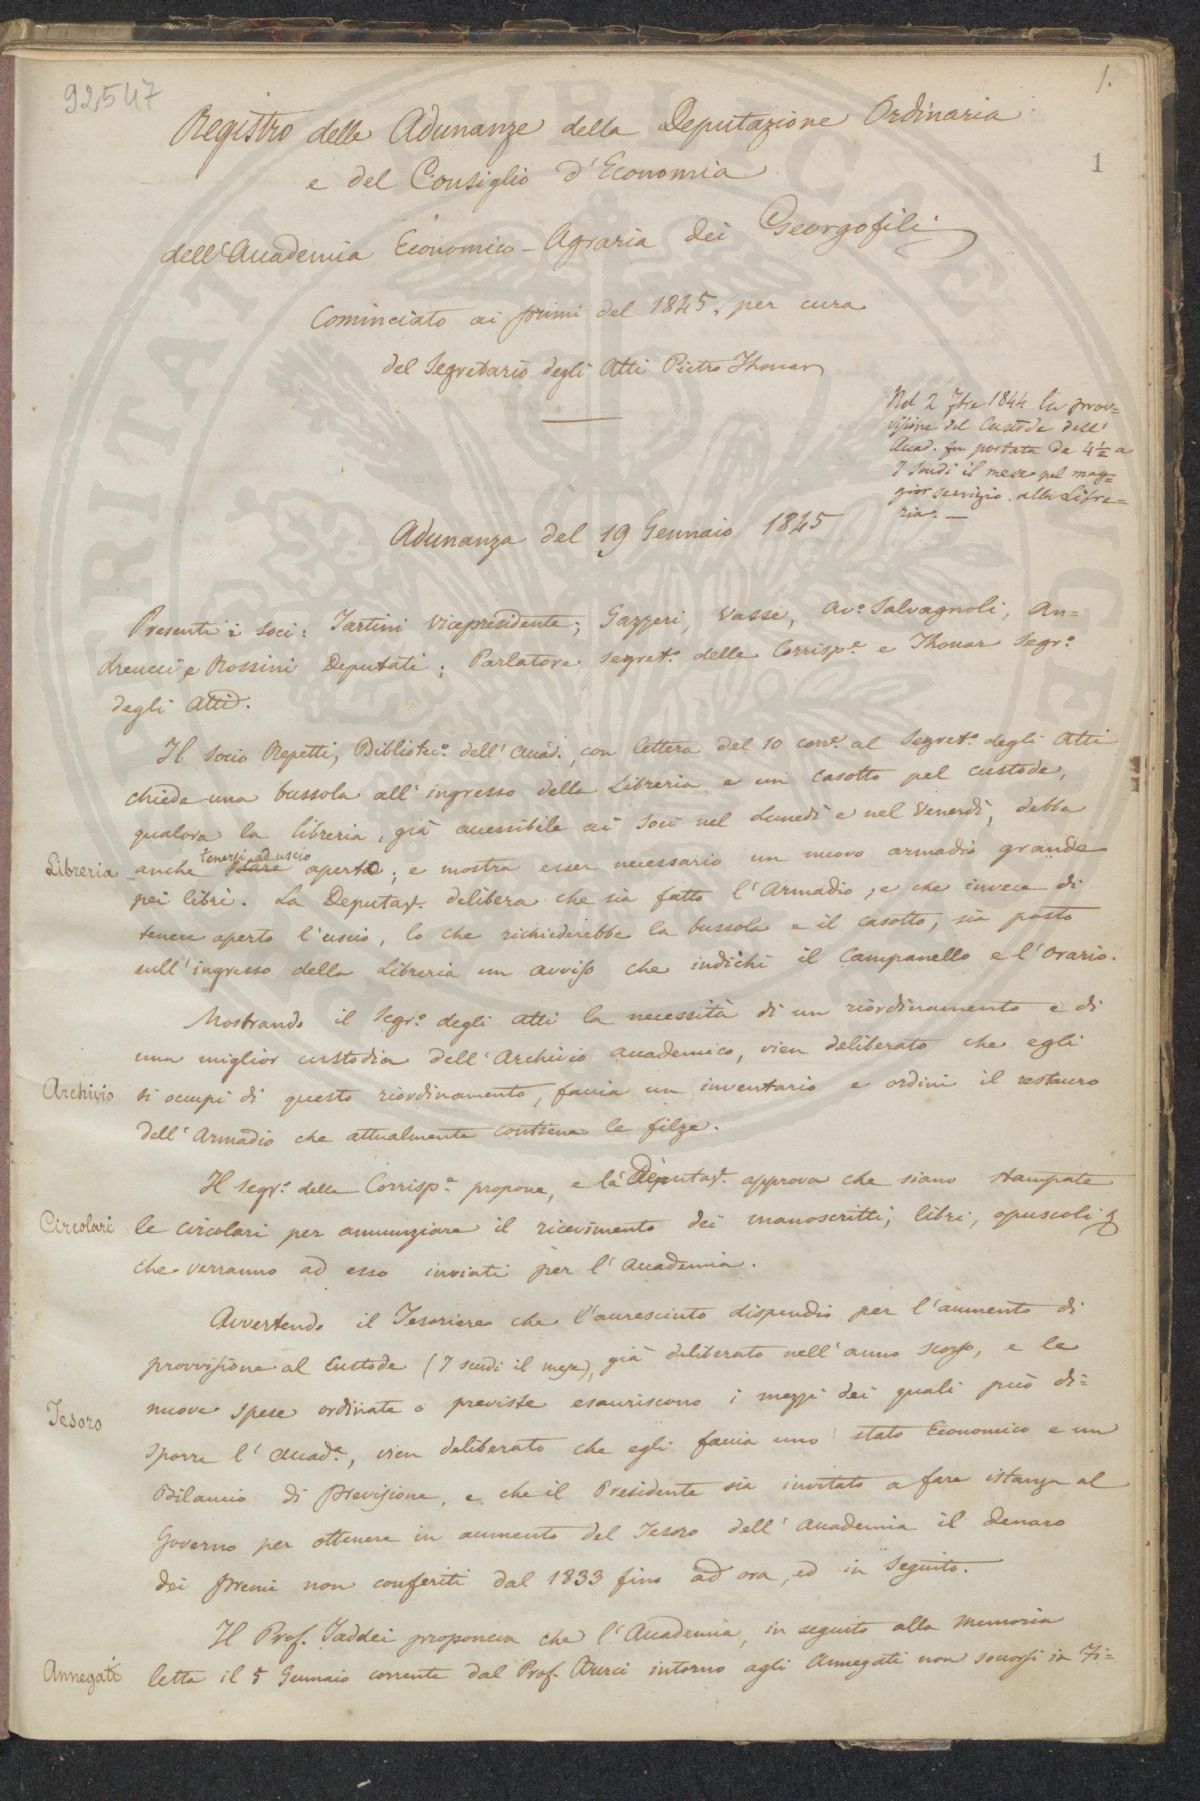 92547
1.
1
Registro delle Adunanze della Deputazione Ordinaria
e del Consiglio d'Economia
dell'Accademia Economico-Agraria dei Georgofili
Cominciato ai primi del 1845, per cura
del Segretario degli Atti Pietro Thouar
Nel 2 7bre 1844 la prov-
visione del Custode dell'
Accad. fu portata da 4 1/2 a
7 scudi il mese pel mag-
gior servizio alla Libre-
ria. —
Adunanza del 19 Gennaio 1845
Presenti i soci: Tartini vicepresidente; Gazzeri, Vasse, Avo. Salvagnoli, An=
dreucci e Rossini Deputati; Parlatore segreto. delle Corrispe. e Thouar Segro.
degli Atti.
Il socio Repetti, Biblioteco. dell'Accad., con lettera del 10 corre. al Segreto. degli Atti
chiede una bussola all'ingresso della Libreria e un casotto pel custode,
qualora la libreria, già accessibile ai Soci nel Lunedì e nel Venerdì, debba
Libreria anche stare tenersi ad uscio aperto; e mostra esser necessario un nuovo armadio grande
pei libri. La Deputaz. delibera che sia fatto l'Armadio; e che invece di
tenere aperto l'uscio, lo che richiederebbe la bussola e il casotto, sia posto
sull'ingresso della Libreria un avviso che indichi il Campanello e l'orario.
Mostrando il Segro. degli Atti la necessità di un riordinamento e di
una miglior custodia dell'Archivio accademico, vien deliberato che egli
Archivio si occupi di questo riordinamento, faccia un inventario e ordini il restauro
dell'Armadio che attualmente contiene le filze.
Il Segro. delle Corrispe. propone, e la Deputaz. approva che siano stampate
Circolari le circolari per annunziare il ricevimento dei manoscritti, libri, opuscoli
che verranno ad esso inviati per l'Accademia.
Avvertendo il Tesoriere che l'accresciuto dispendio per l'aumento di
provvisione al Custode (7 scudi il mese), già deliberato nell'anno scorso, e le
nuove spese ordinate o previste esauriscono i mezzi dei quali può di=
Tesoro
sporre l'Accada., vien deliberato che egli faccia uno stato Economico e un
Bilancio di Previsione, e che il Presidente sia invitato a fare istanza al
Governo per ottenere in aumento del Tesoro dell'Accademia il denaro
dei Premi non conferiti dal 1833 fino ad ora, ed in seguito.
Il Prof. Taddei proponeva che l'Accademia, in seguito alla Memoria
Annegati letta il 5 Gennaio corrente dal Prof. intorno agli Annegati non soccorsi in Fi=